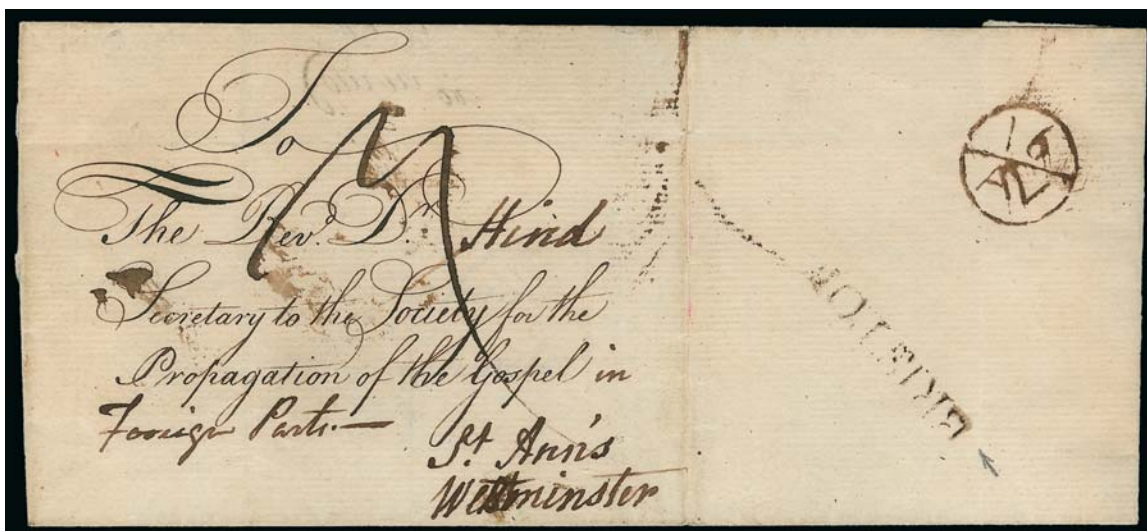 To
The Revd. Dr. Hind
Secretary to the Society for the
Propagation of the Gospel in
Foreign Parts.—
St. Ann's
Westminster